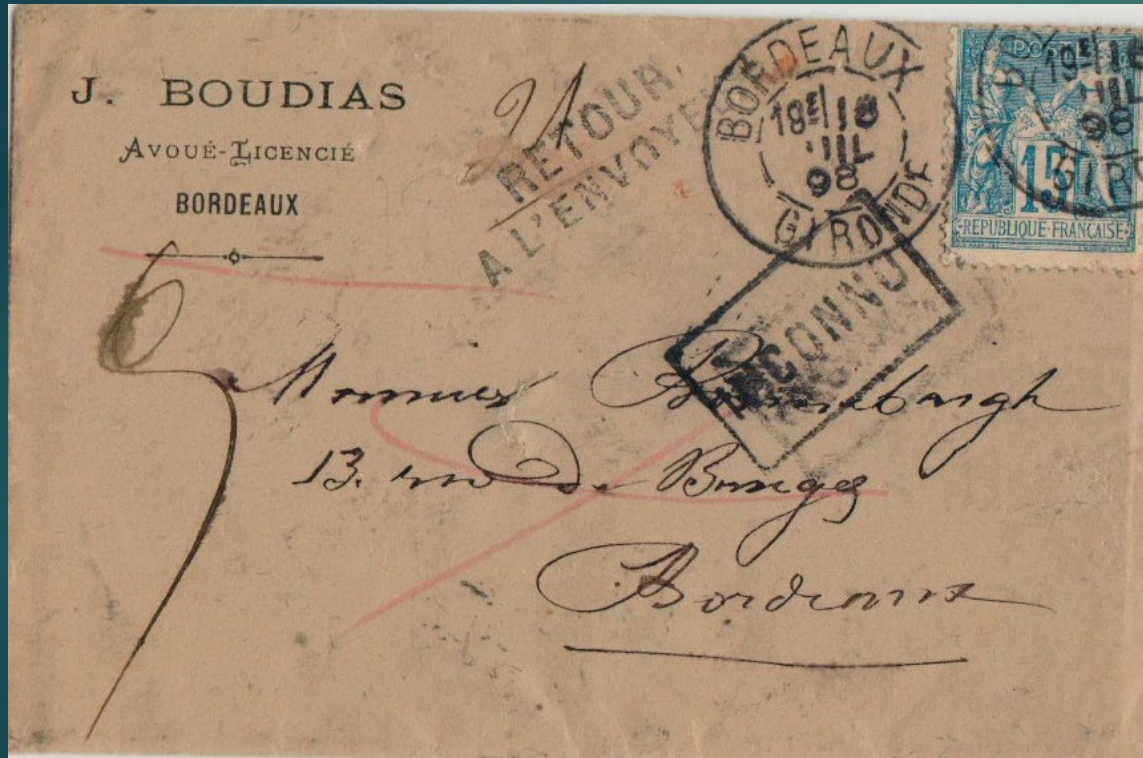 J. BOUDIAS
AVOUÉ-LICENCIÉ
BORDEAUX
RETOUR
A L'ENVOYEUR
BORDEAUX
18
JUIL
98
GIRONDE
POSTES
15
REPUBLIQUE FRANÇAISE
INCONNU
Monsieur
13, rue de Bruges
Bordeaux